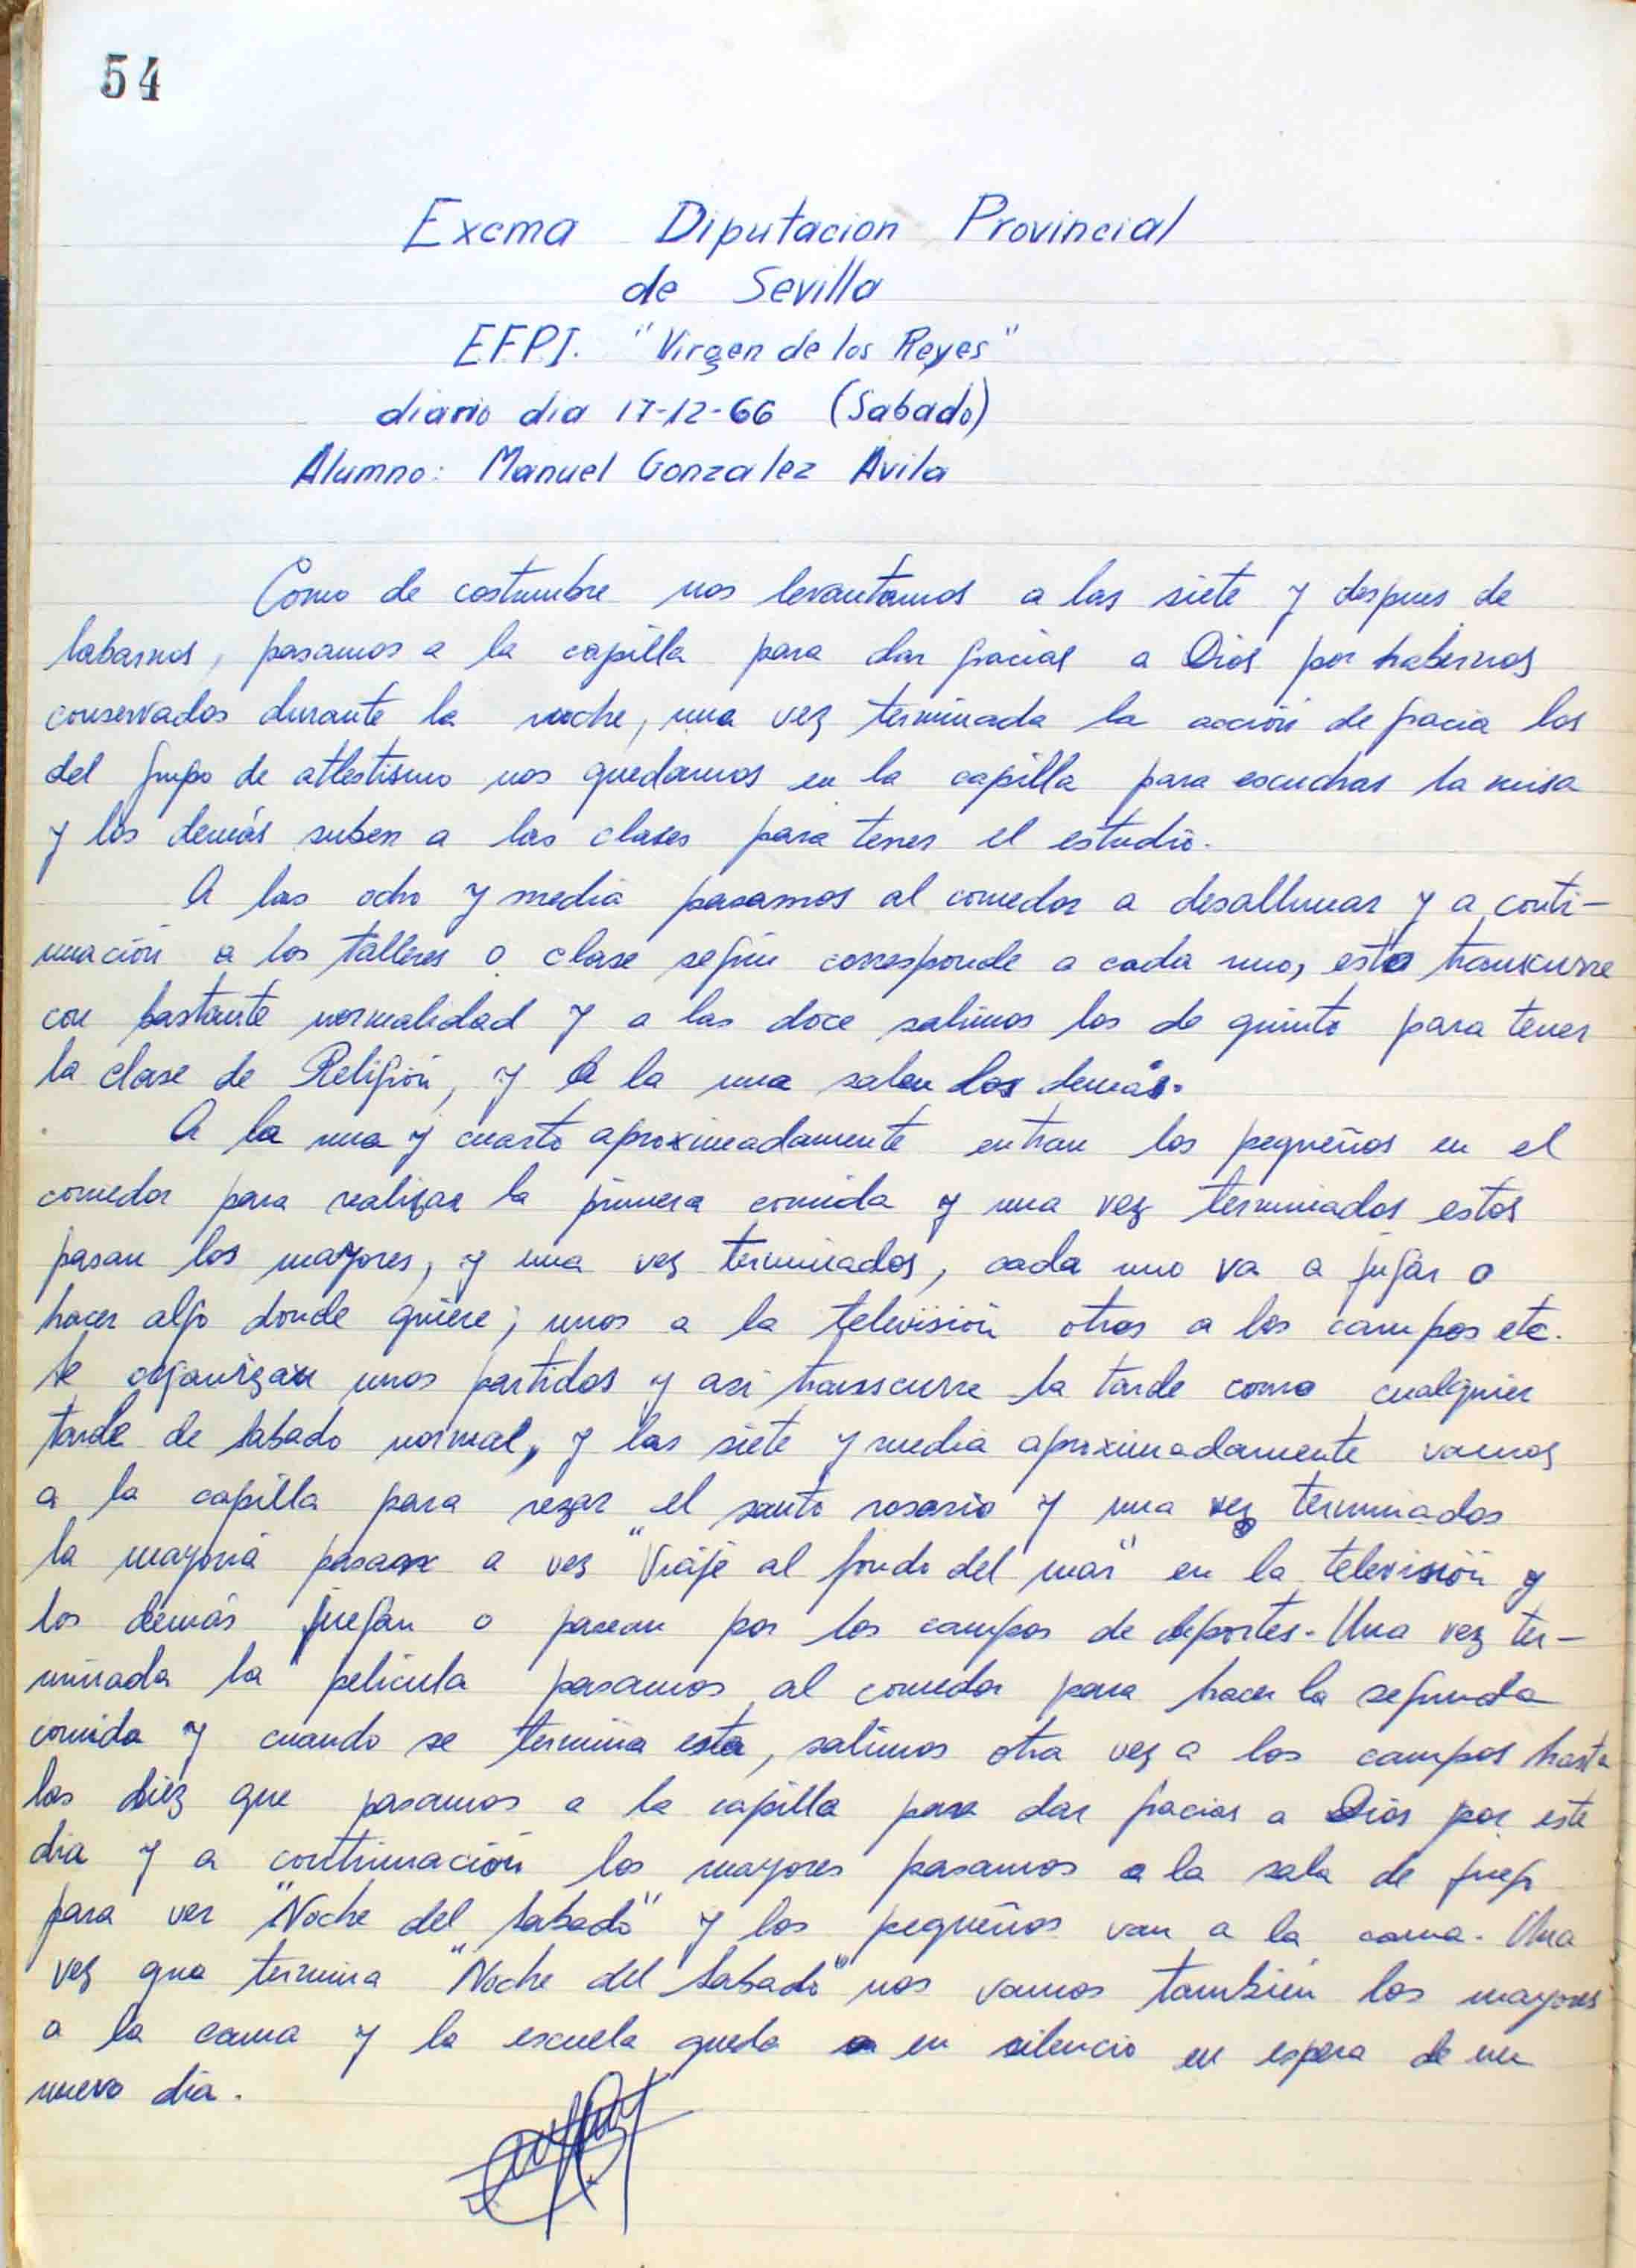 54
Excma Diputacion Provincial
de Sevilla
EFPI. "Virgen de los Reyes"
diario dia 17-12-66 (Sabado)
Alumno: Manuel Gonzalez Avila
Como de costumbre nos levantamos a las siete y despues de
labarnos, pasamos a la capilla para dar gracias a Dios por habernos
conservados durante la noche, una vez terminada la acción de gracia los
del grupo de atlestismo nos quedamos en la capilla para escuchar la misa
y los demás suben a las clases para tener el estudio.
A las ocho y media pasamos al comedor a desallunar y a conti-
nuación a los talleres o clase según corresponde a cada uno, esto transcurre
con bastante normalidad y a las doce salimos los de quinto para tener
la clase de Religión, y a la una salen los demás.
A la una y cuarto aproximadamente entran los pequeños en el
comedor para realizar la primera comida y una vez terminados estos
pasan los mayores, y una vez terminados, cada uno va a jugar o
hacer algo donde quiere; unos a la televisión otros a los campos etc.
Se organizan unos partidos y asi transcurre la tarde como cualquier
tarde de Sabado normal, y las siete y media aproximadamente vamos
a la capilla para rezar el santo rosario y una vez terminados
la mayoria pasan a ver "Viaje al fondo del mar" en la televisión y
los demás juegan o pasean por los campos de deportes. Una vez ter-
minada la pelicula pasamos al comedor para hacer la segunda
comida y cuando se termina esta, salimos otra vez a los campos hasta
las diez que pasamos a la capilla para dar gracias a Dios por este
dia y a continuación los mayores pasamos a la sala de juego
para ver "Noche del Sabado" y los pequeños van a la cama. Una
vez que termina "Noche del Sabado" nos vamos también los mayores
a la cama y la escuela queda en silencio en espera de un
nuevo dia.